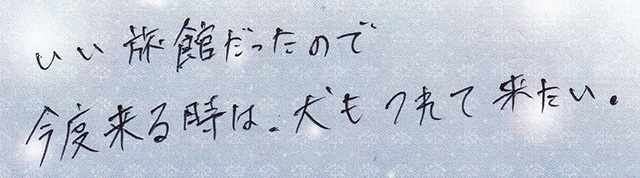 いい旅館だったので
今度来る時は、犬もつれて来たい。